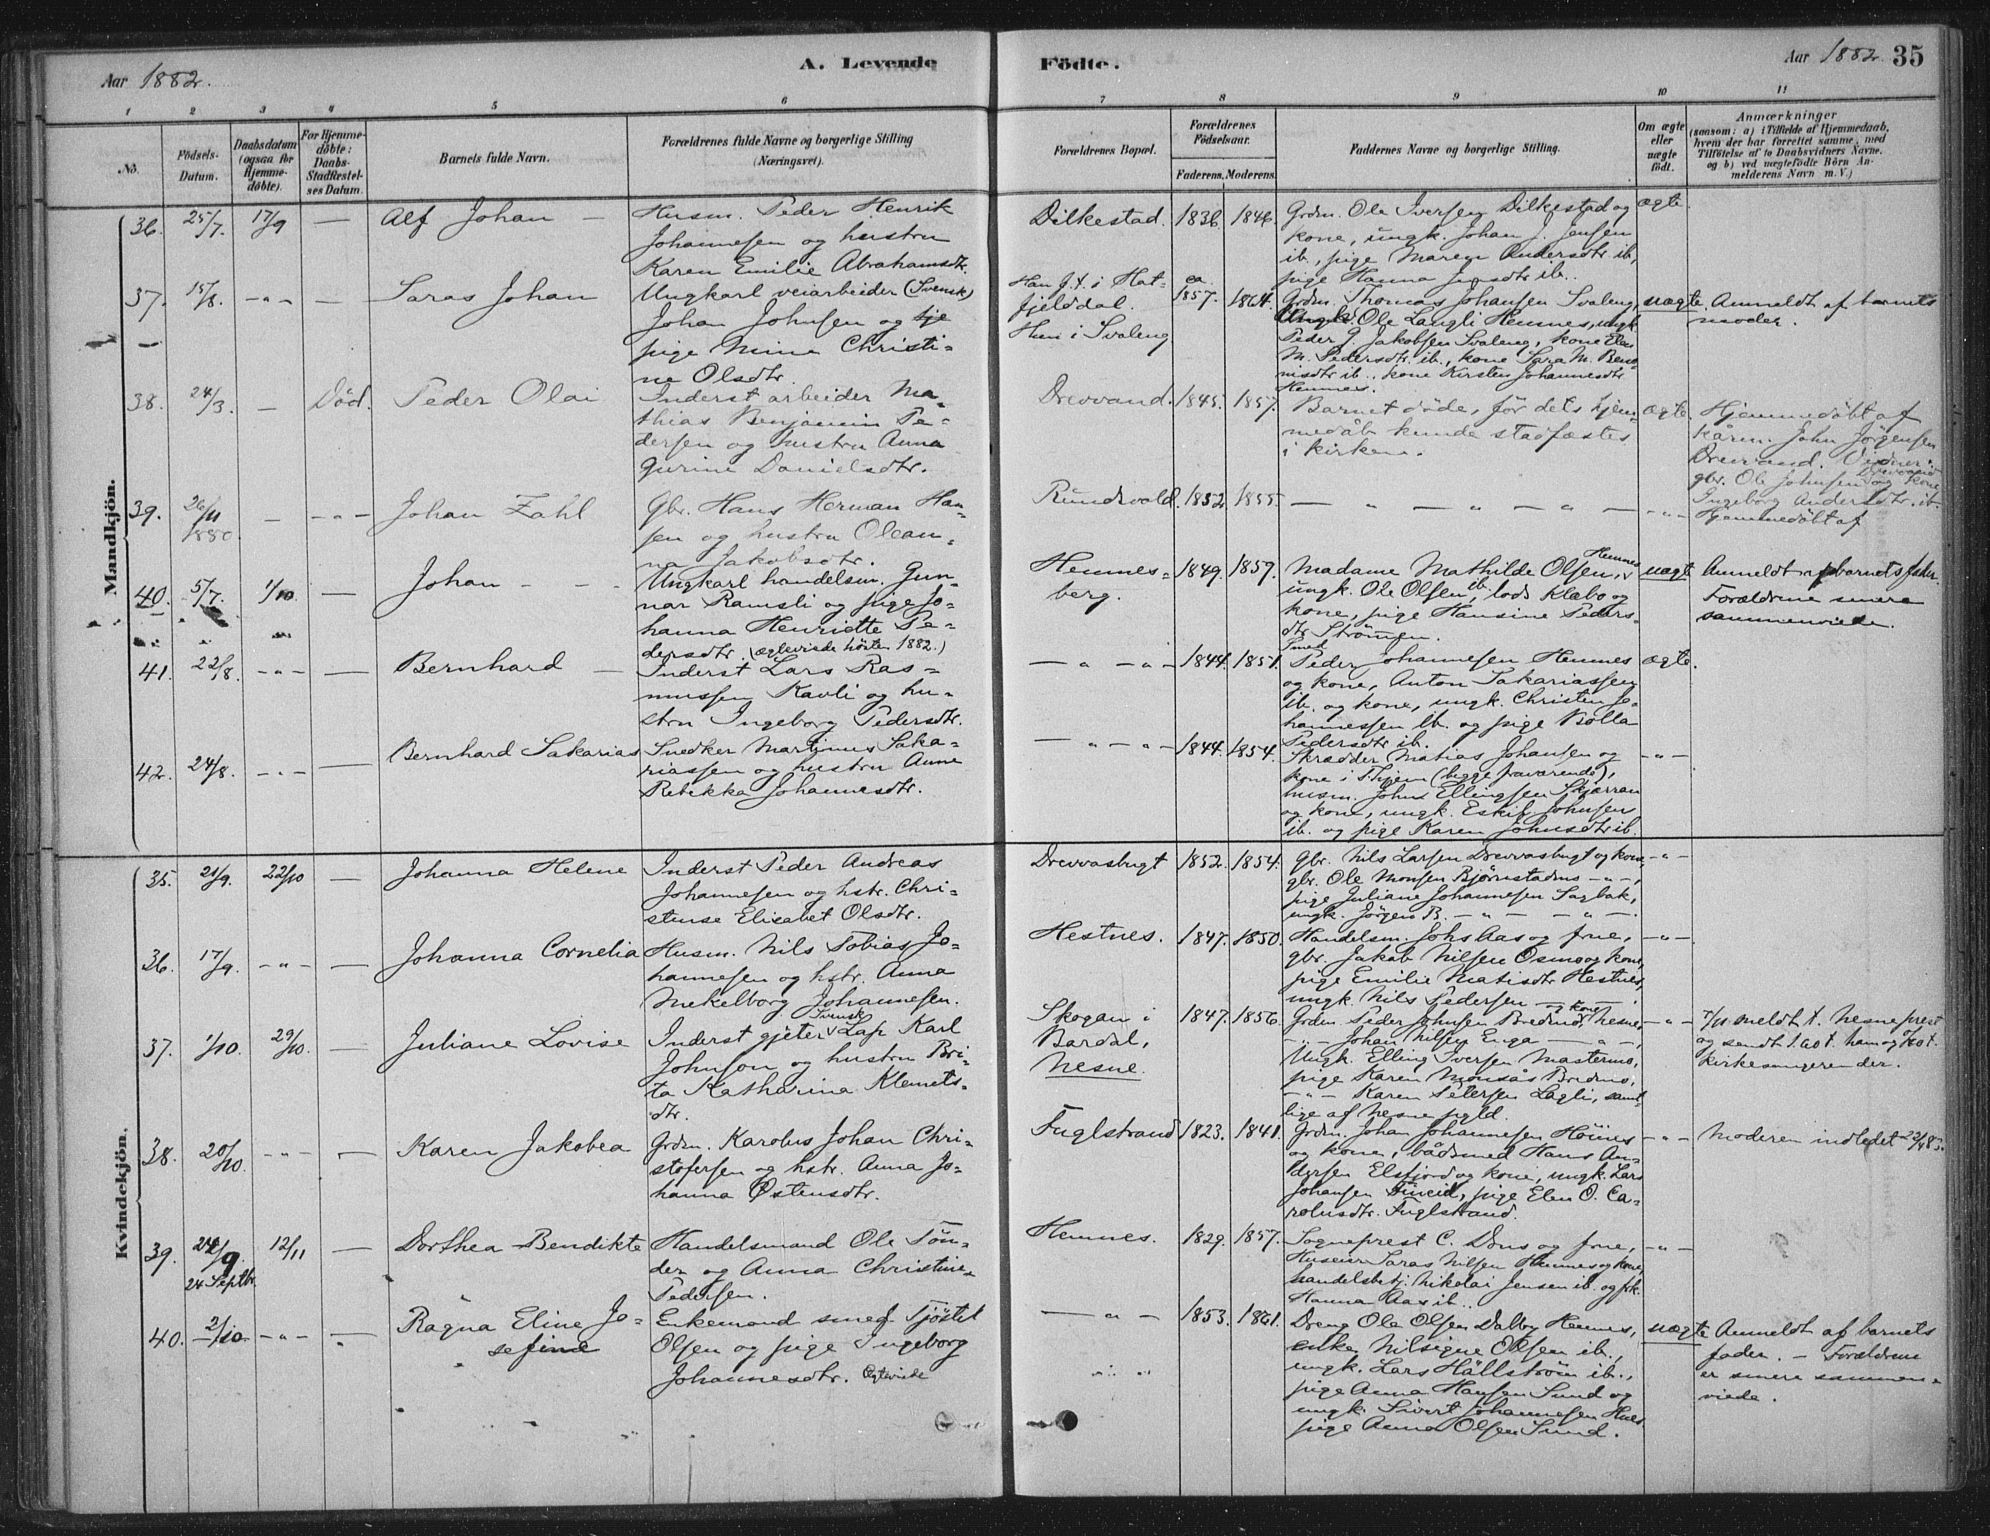 Aar 1882. A. Levende Födte. Aar 1882. 35
1 2 3 4 5 6 7 8 9 10 11
No. Födsels-Datum. Daabsdatum (ogsaa for Hjemmedöbte). For Hjemmedöbte: Daabs-Stadfæstelses Datum. Barnets fulde Navn. Forældrenes fulde Navne og borgerlige Stilling (Næringsvei). Forældrenes Bopæl. Forældrenes Födselsaar. Faderens. Moderens. Faddernes Navne og borgerlige Stilling. Om ægte eller uægte födt. Anmærkninger (saasom: a) i Tilfælde af Hjemmedaab, hvem der har forrettet samme, med Tilföielse af to Daabsvidners Navne, og b) ved uægtefödte Börn Anmelderens Navn m. V.)
Mandkjön.
36. 25/7. 17/9 — Alf Johan — Husm. Peder Henrik
Johannesen og hustru
Karen Emilie Abrahamsdtr.
Dilkestad. 1836. 1846. Grdm. Ole Iversen Dilkestad og
kone, ungk. Johan J. Jensen
ib., pige Maren Andersdtr ib,
pige Hanna Jensdtr ib..
ægte.
37. 15/8. -"- — Saras Johan Ungkarl veiarbeider (Svensk)
Johan Johnsen og tje
pige Mina Christi-
ne Olsdtr.
Han J.t. i Hat-
fjelddal.
Hun i Svaleng
ca. 1857. 1864. Grdm. Thomas Johansen Svaleng,
Ungk. Ole Langli Hemnes, ungk
Peder J. Jakobsen Svaleng, kone Elen
M. Pedersdtr. ib., kone Sara M. Ben-
ib., kone Kirsten Johannesdtr
Hemnes.
uægte. Anmeldt af barnets
moder.
38. 24/3. — Död. Peder Olai Inderst arbeider Ma-
thias Benjamin Pe-
dersen og hustru Anna
Gurine Danielsdtr.
Drevvand. 1845. 1857. Barnet döde, för dets hjem-
medåb kunde stadfæstes
i kirken.
ægte. Hjemmedöbt af
kårm. John Jörgensen
Drevvand. Vidner:
gbr. Ole Johnsen Drevvand og kone
Ingeborg Andersdtr. ib.
39. 26/11 1880. — -"- Johan Zahl Gbr. Hans Herman Han-
sen og hustru Olean-
na Jakobsdtr.
Rundvold. 1852. 1855. — " — " — " — -"- Hjemmedöbt af
40. 5/7. 1/10. — Johan — - - Ungkarl handelsm. Gun-
nar Ramsli og pige Jo-
hanna Henriette Pe-
dersdtr. (ægteviede hösten 1882.)
Hemnes-
berg.
1849. 1859. Madame Mathilde Olsen, Hemnes
ungk. Ole Olsen, ib. lods Klæbo og
kone, pige Hansine Peders-
dtr Strömen.
uægte Anmeldt af barnets fader.
Forældrene senere
sammenviede.
41. 22/8. -"- — Bernhard — Inderst Lars Ras-
mussen Ravli og hu-
stru Ingeborg Pedersdtr.
— " — " — 1844. 1851. Smed
Peder Johannesen Hemnes
og kone, Anton Sakariassen
ib. og kone, ungk. Christen Jo-
hannessen ib. og pige Bolla
Pedersdtr ib.
ægte.
42. 24/8. -"- — Bernhard Sakarias Snedker Martinus Saka-
riassen og hustru Anne
Rebekka Johannesdtr.
— " — " — 1844. 1854. Skrædder Matias Johansen og
kone i (begge fraværende),
husm. Johns Ellingsen Skjærran
og kone, ungk. Eskil Johnsen
ib. og pige Karen Johnsdtr ib.
-"-
Kvindekjön.
35. 21/9. 22/10 — Johanna Helene Inderst Peder Andreas
Johannesen og hstr. Chri-
stense Elisabet Olsdtr.
Drevvasbugt 1852. 1854. Gbr. Nils Larsen Drevvasbugt og kone,
gbr. Ole Monsen Bjørnstadnes -"-,
pige Juliane Johannesen Sagbak,
ungk. Jörgen B. — " — " —.
-"-
36. 17/9. -"- — Johanna Cornelia Husm. Nils Tobias Jo-
hannesen og hstr. Anna
Mekelborg Johannesen.
Hestnes. 1847. 1850. Handelsm. Johs Aas og frue,
gbr. Jakob Nilsen Osmo og kone,
pige Emilie Matisdtr Hestnes,
ungk. Nils Pedersen — " —.
-"-
37. 1/10. 29/10. — Juliane Lovise Inderst gjeter Svensk Lap Karl
Johnson og hustru Bri-
ta Katharina Klemets-
dtr.
Skogan i
Bardal,
Nesne.
1847. 1856. Grdm. Peder Johnsen Bredmo, og kone Nesne,
-"- Johan Nilsen Enga — " —,
Ungk. Elling Iversen Mastermo,
pige Karen Monsås Bredmo,
-"- Karen Petersen Lagli, samt-
lige af Nesne pgld.
-"- 7/11 meldt t. Nesne prest
og sendt 1.60 t. ham og 0/60 t.
kirkesangeren der.
38. 20/10 -"- — Karen Jakobea Grdm. Karolus Johan Chri-
stofersen og hstr. Anna Jo-
hanna Østensdtr.
Fuglstrand 1823. 1841. Grdm. Johan Johannesen Höines
og kone, bådsmed Hans An-
dersen Elsfjord og kone, ungk. Lars
Johansen Fineid, pige Elen O. Ca-
rolusdtr. Fuglstrand.
-"- Moderen indledet 22/4 83.
39. 24/9 12/11 — Dorthea Bendikte Handelsmand Ole Tön-
24 Septbr. der og Anna Christine
Pedersen.
Hemnes. 1829. 1857. Sogneprest C. Dons og frue,
Huseier Saras Nilsen Hemnes og kone,
handelsbetj. Nikolai Jensen ib. og frk.
Hanna Aas ib..
-"-
40. 2/10 -"- — Ragna Eline Jo-
sefine
Enkemand smed Tjöstel
Olsen og pige Ingeborg
Johannesdtr. Ægteviede
— " — 1853. 1861. Dreng Ole Olsen Dalby Hemnes,
enke Nilsigne Olsen ib.,
ungk. Lars Hällström ib.,
pige Anna Hansen Sund og
ungk. Sivert Johannesen
pige Anna Olsen Sund.
uægte Anmeldt af barnets
fader. — Forældrene
er senere sammen-
viede.